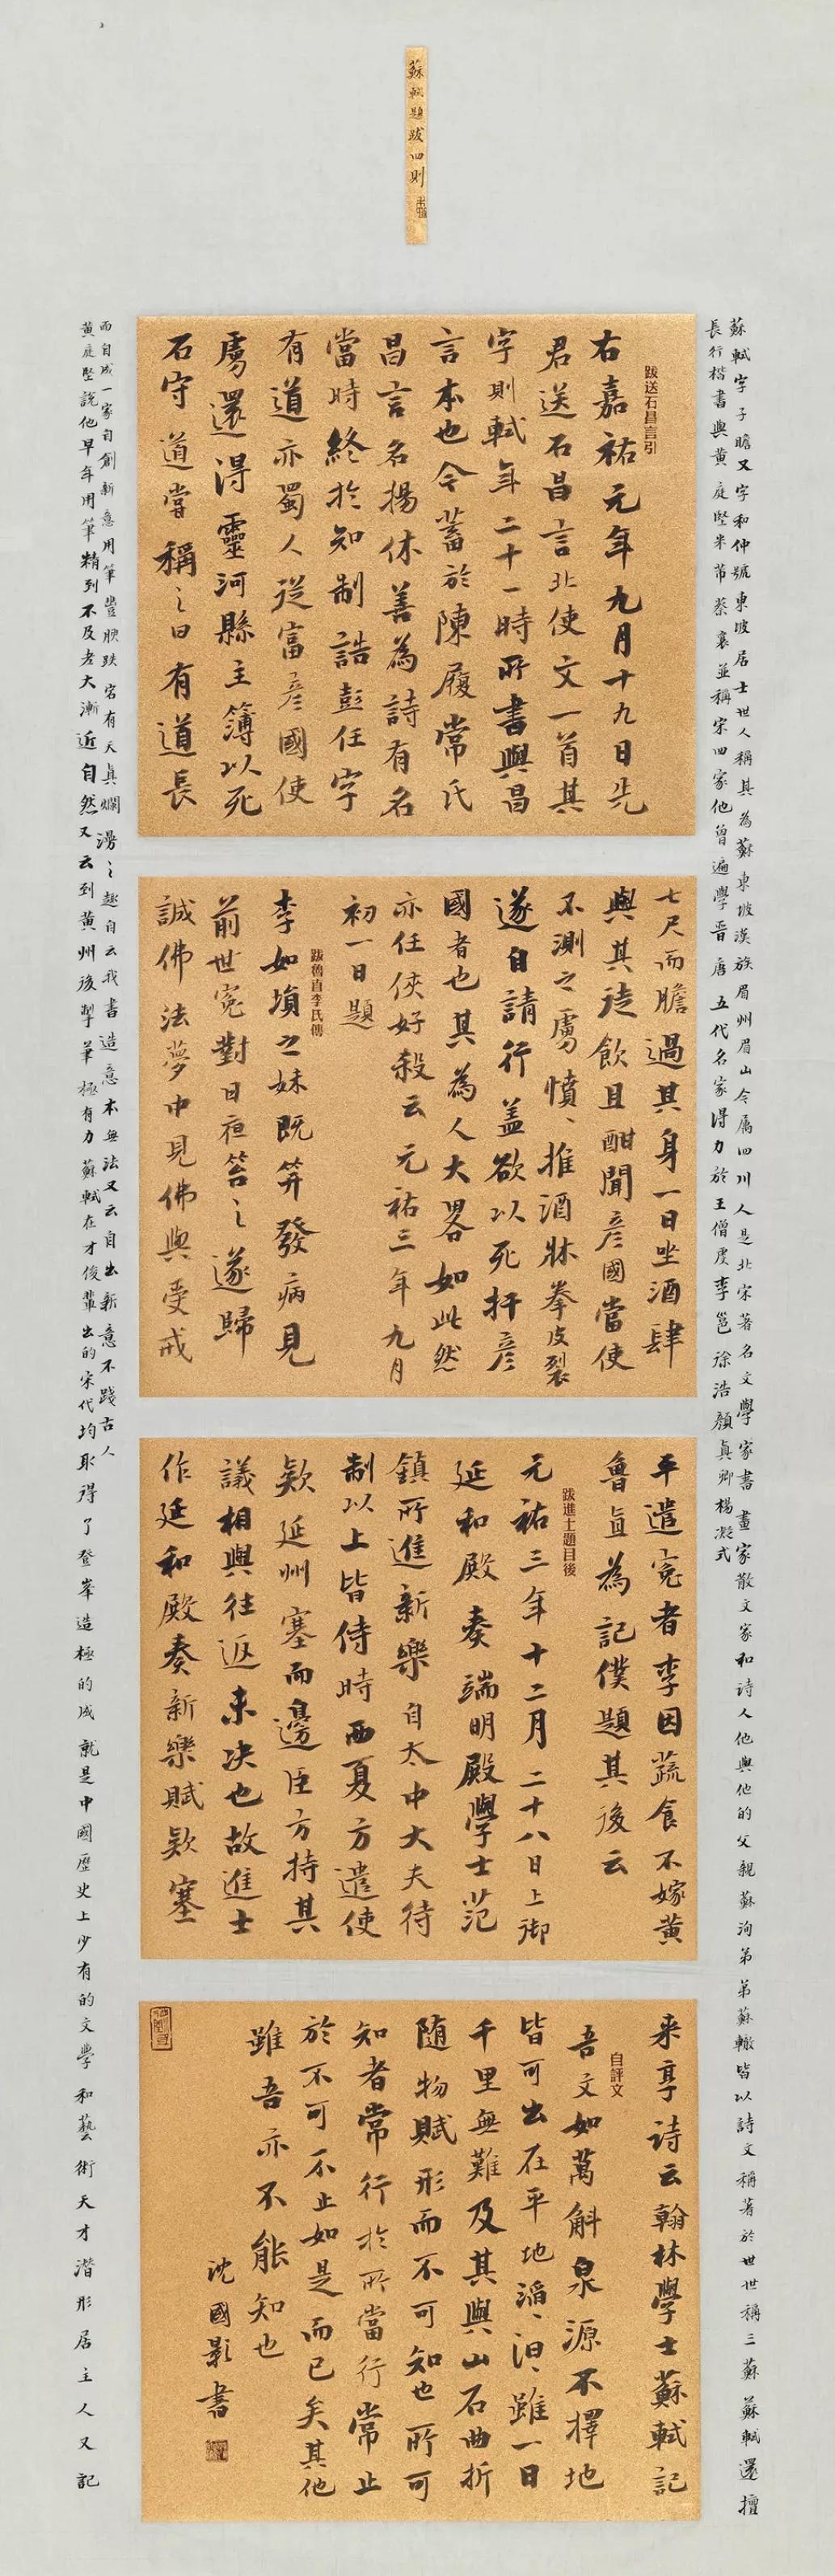 蘇軾題跋四則
跋送石昌言引
右嘉祐元年九月十九日先
君送石昌言北使文一首其
字則軾年二十一時所書與昌
言本也今蓄於陳履常氏
昌言名揚休善為詩有名
當時終於知制誥彭任字
有道亦蜀人從富彦國使
虜還得靈河縣主簿以死
石守道嘗稱之曰有道長
七尺而膽過其身一日坐酒肆
與其徒飲且酣聞彦國當使
不測之虜憤、推酒牀拳皮裂
遂自請行盖欲以死扞彦
國者也其為人大畧如此然
亦任俠好殺云元祐三年九月
初一日題
跋魯直李氏傳
李如塤之妹既筓發病見
前世寃對日夜笞之遂歸
誠佛法夢中見佛與受戒
平遣寃者李因蔬食不嫁黄
魯直為記僕題其後云
跋進士題目後
元祐三年十二月二十八日上御
延和殿奏端明殿學士范
鎮所進新樂自太中大夫待
制以上皆侍時西夏方遣使
欵延州塞而邊臣方持其
議相與往返未决也故進士
作延和殿奏新樂賦欵塞
来享詩云翰林學士蘇軾記
自評文
吾文如萬斛泉源不擇地
皆可出在平地滔、汩、雖一日
千里無難及其與山石曲折
随物賦形而不可知也所可
知者常行於所當行常止
於不可不止如是而已矣其他
雖吾亦不能知也
沈國影書
蘇軾字子瞻又字和仲號東坡居士世人稱其為蘇東坡漢族眉州眉山今屬四川人是北宋著名文學家書畫家散文家和詩人他與他的父親蘇洵弟弟蘇轍皆以詩文稱著於世世稱三蘇蘇軾還擅
長行楷書與黄庭堅米芾蔡襄並稱宋四家他曾遍學晋唐五代名家得力於王僧虔李邕徐浩顔真卿楊凝式
而自成一家自創新意用筆豐腴跌宕有天真爛漫之趣自云我書造意本無法又云自出新意不踐古人
黄庭堅說他早年用筆精到不及老大漸近自然又云到黄州後掣筆極有力蘇軾在才俊輩出的宋代均取得了登峯造極的成就是中國歷史上少有的文學和藝術天才潜形居主人又記